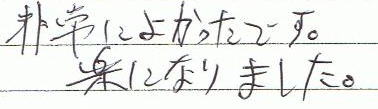 非常によかったです。
楽になりました。